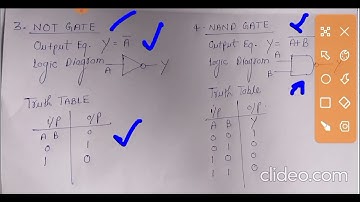 3. NOT GATE
Output Eq. Y = A̅
Logic Diagram A Y
Truth TABLE
I/P O/P
A B 0
0 1
1 0
4. NAND GATE
Output Eq. Y = A+B
Logic Diagram A
B
Truth Table
I/P O/P
A B Y
0 0 1
0 1 0
1 0 0
1 1 0
clideo.com